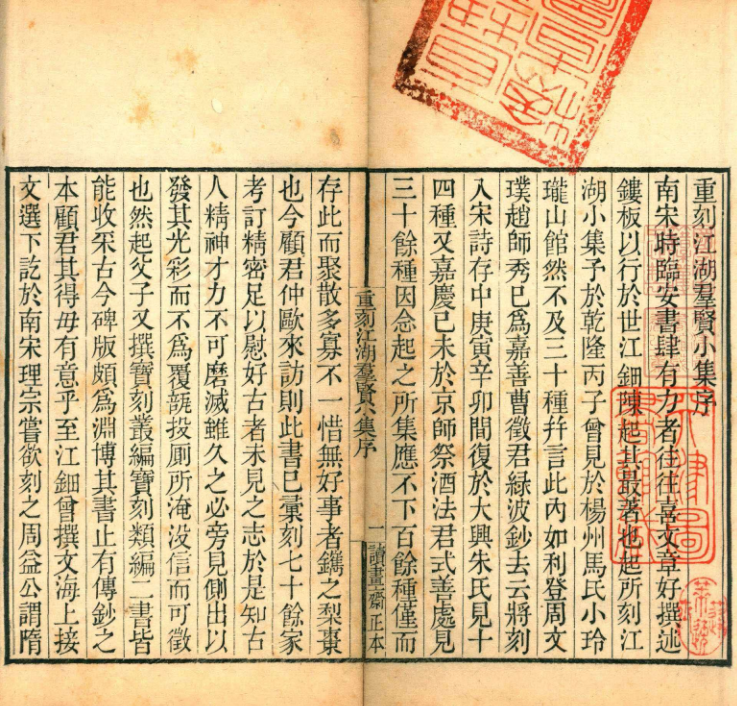 重刻江湖羣賢小集序
南宋時臨安書肆有力者往往喜文章好撰述
鏤板以行於世江鈿陳起其最著也起所刻江
湖小集予於乾隆丙子曾見於楊州馬氏小玲
瓏山館然不及三十種幷言此內如利登周文
璞趙師秀已爲嘉善曹徵君綠波鈔去云將刻
入宋詩存中庚寅辛卯間復於大興朱氏見十
四種又嘉慶己未於京師祭酒法君式善處見
三十餘種因念起之所集應不下百餘種僅而
重刻江湖羣賢小集序
一
讀畫齋正本
存此而聚散多寡不一惜無好事者鐫之梨棗
也今顧君仲歐來訪則此書已彙刻七十餘家
考訂精密足以慰好古者未見之志於是知古
人精神才力不可磨滅雖久之必旁見側出以
發其光彩而不爲覆瓿投厠所淹没信而可徵
也然起父子又撰寶刻叢編寶刻類編二書皆
能收采古今碑版頗爲淵博其書止有傳鈔之
本顧君其得毋有意乎至江鈿曾撰文海上接
文選下訖於南宋理宗嘗欲刻之周益公謂隋